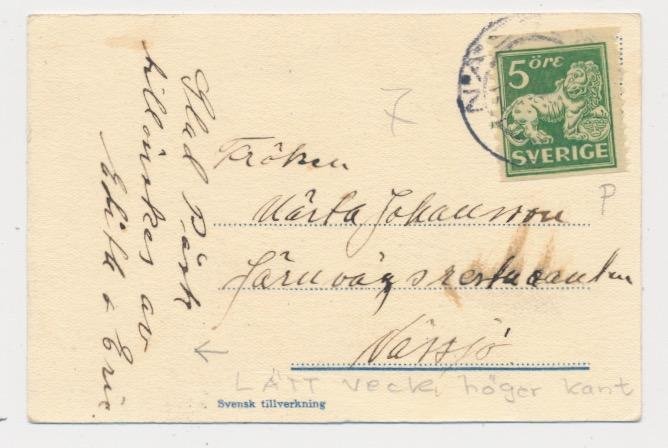 Glad Påsk
tillönskes av
Edith & Eric
7
NÄ
5 öre
SVERIGE
P
Fröken
Märta Johansson
Järnvägsrestauranten
Nässjö
← LÄTT veck, höger kant
Svensk tillverkning